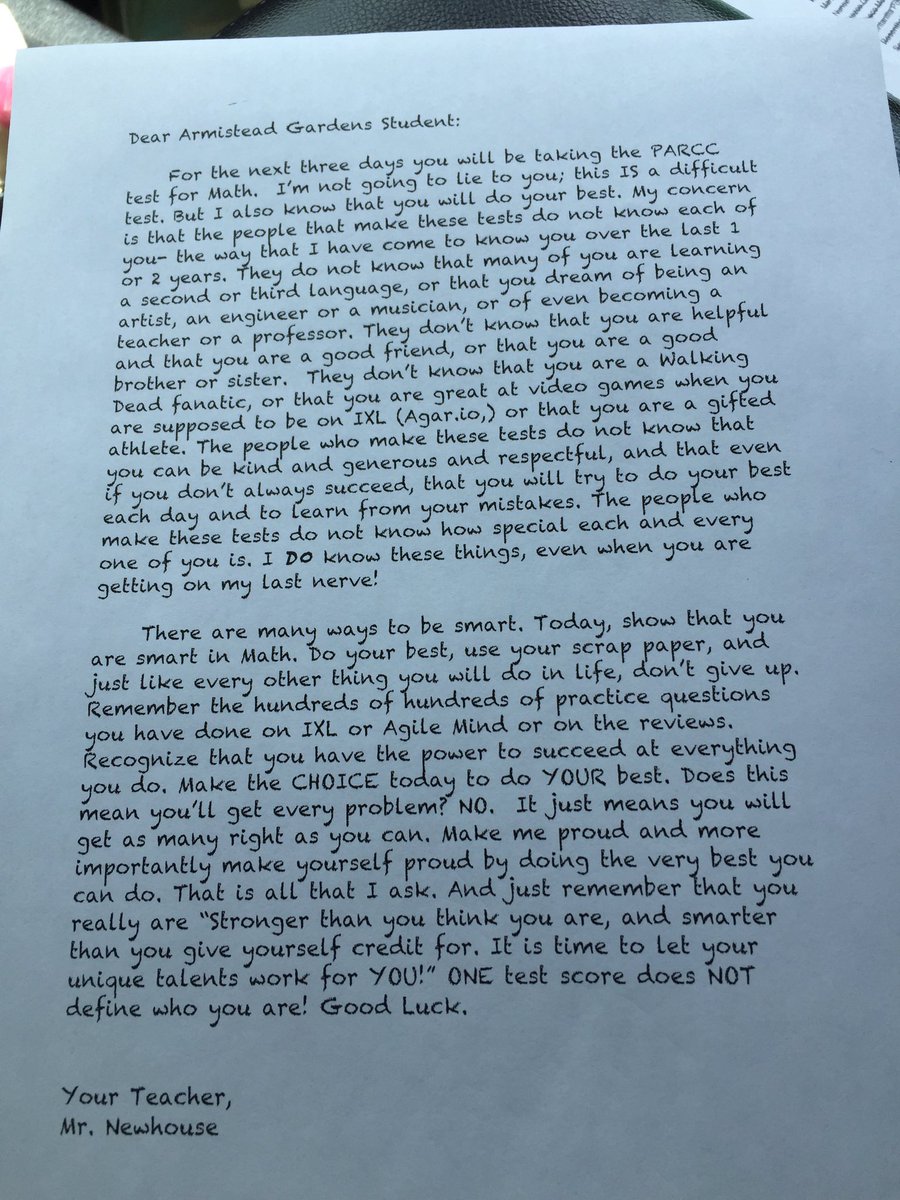 Dear Armistead Gardens Student:
For the next three days you will be taking the PARCC
test for Math.  I'm not going to lie to you; this IS a difficult
test. But I also know that you will do your best. My concern
is that the people that make these tests do not know each of
you- the way that I have come to know you over the last 1
or 2 years. They do not know that many of you are learning
a second or third language, or that you dream of being an
artist, an engineer or a musician, or of even becoming a
teacher or a professor. They don't know that you are helpful
and that you are a good friend, or that you are a good
brother or sister.  They don't know that you are a Walking
Dead fanatic, or that you are great at video games when you
are supposed to be on IXL (Agar.io,) or that you are a gifted
athlete. The people who make these tests do not know that
you can be kind and generous and respectful, and that even
if you don't always succeed, that you will try to do your best
each day and to learn from your mistakes. The people who
make these tests do not know how special each and every
one of you is. I DO know these things, even when you are
getting on my last nerve!
There are many ways to be smart. Today, show that you
are smart in Math. Do your best, use your scrap paper, and
just like every other thing you will do in life, don't give up.
Remember the hundreds of hundreds of practice questions
you have done on IXL or Agile Mind or on the reviews.
Recognize that you have the power to succeed at everything
you do. Make the CHOICE today to do YOUR best. Does this
mean you'll get every problem? NO.  It just means you will
get as many right as you can. Make me proud and more
importantly make yourself proud by doing the very best you
can do. That is all that I ask. And just remember that you
really are "Stronger than you think you are, and smarter
than you give yourself credit for. It is time to let your
unique talents work for YOU!" ONE test score does NOT
define who you are! Good Luck.
Your Teacher,
Mr. Newhouse